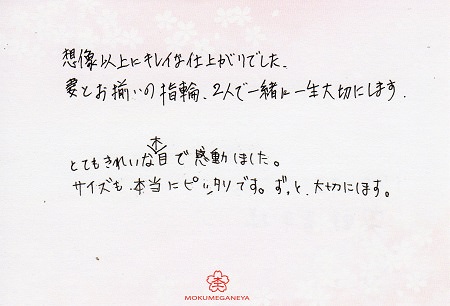 想像以上にキレイな仕上がりでした。
妻とお揃いの指輪、2人で一緒に一生大切にします。
とてもきれいな木目で感動しました。
サイズも本当にピッタリです。ずっと、大切にします。
MOKUMEGANEYA